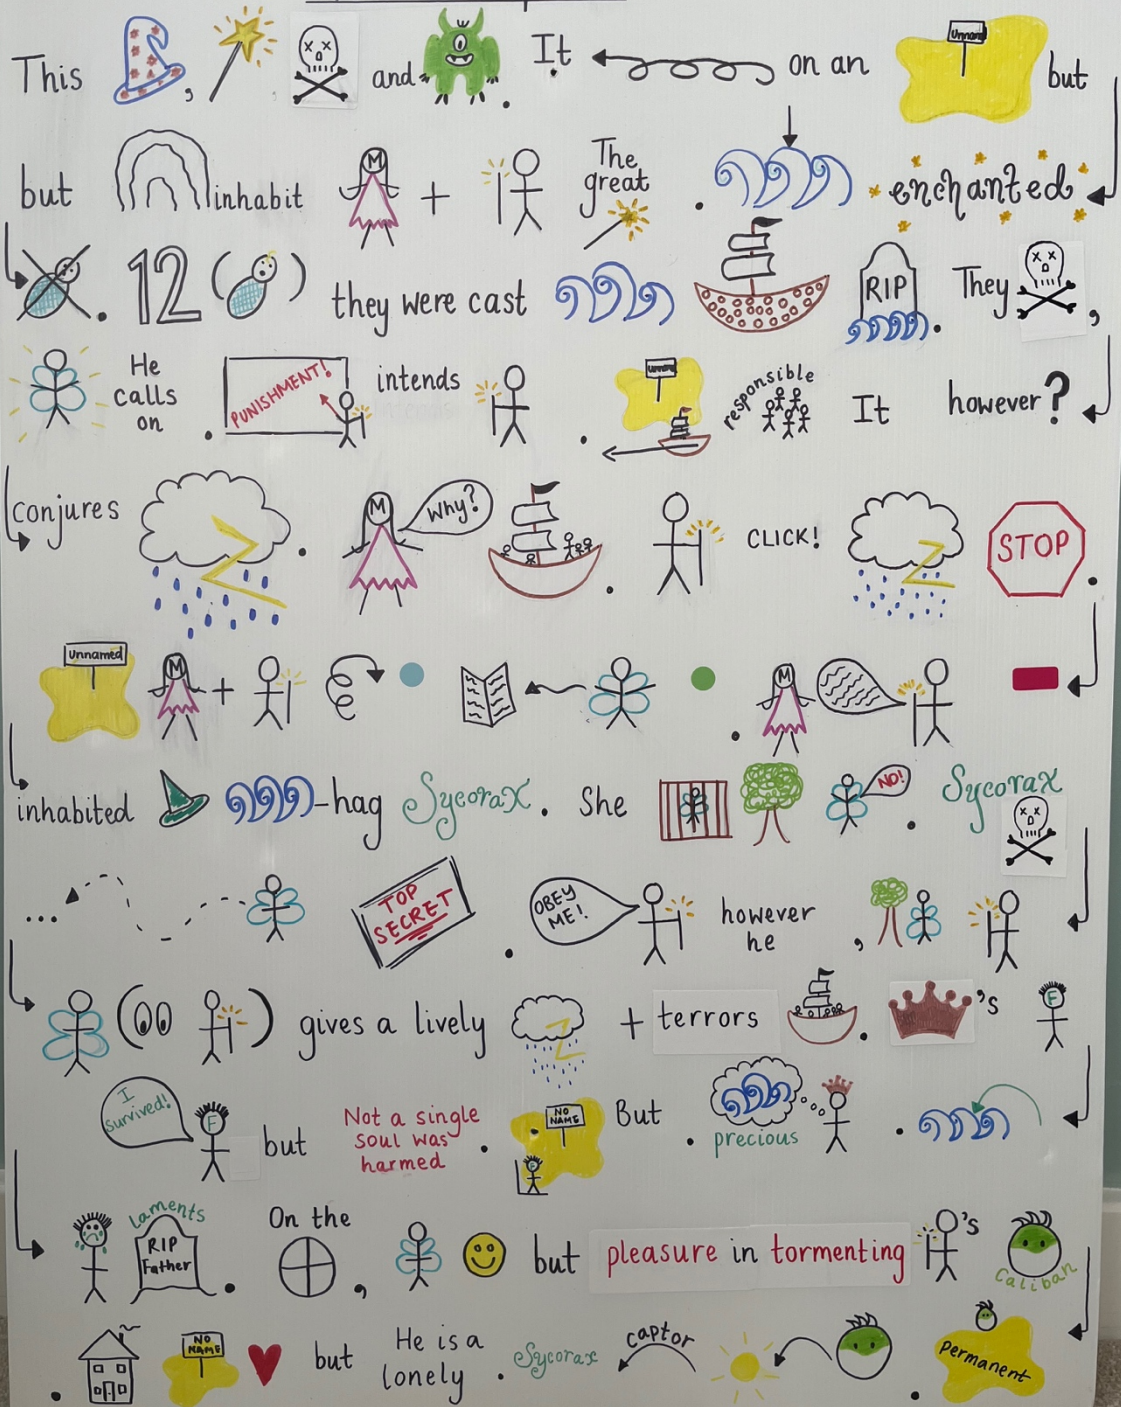 This , and . It on an Unnamed but
but inhabit M + The great . enchanted
. 12 ( ) they were cast RIP . They ,
He calls on . PUNISHMENT! intends . responsible It however?
conjures . M Why? . CLICK! STOP .
Unnamed M + . M
inhabited -hag Sycorax. She NO! . Sycorax
... TOP SECRET . OBEY ME! however he ,
( ) gives a lively + terrors . 's F
I survived! F but Not a single soul was harmed . NO NAME F But . precious .
laments RIP Father . On the , but pleasure in tormenting 's Caliban
. NO NAME but He is a lonely . Sycorax captor . Permanent